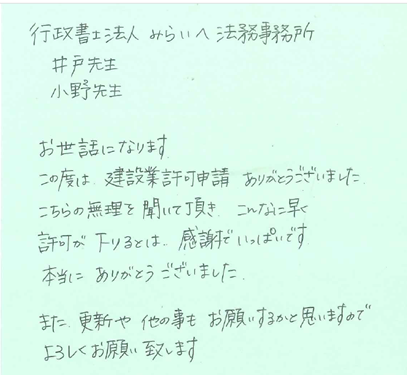 行政書士法人 みらいへ 法務事務所
井戸先生
小野先生
お世話になります.
この度は 建設業許可申請 ありがとうございました.
こちらの無理を聞いて頂き こんなに早く
許可が下りるとは、感謝でいっぱいです
本当に ありがとうございました.
また 更新や 他の事も お願いするかと思いますので
よろしくお願い致します